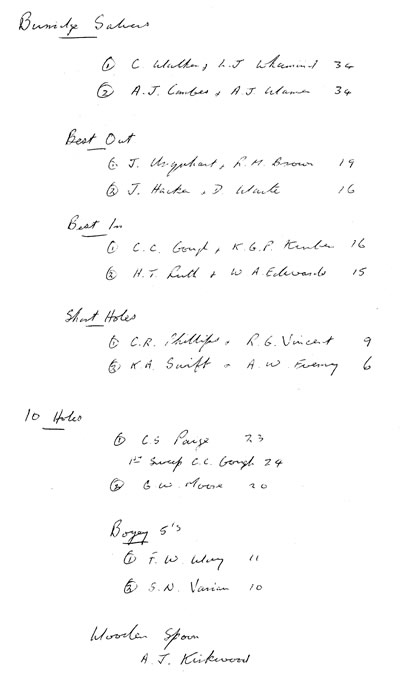 Salvers
① C. Walker, L.J. 34
② A.J. Coombes, A J Warner 34
Best Out
① J. Urquhart, R.M. Brown 19
② J. Hacker, D 16
Best In
① C.C. Gough, K.G.P. 16
② H.T. Rutt, W A Edwards 15
Short Holes
① C.R. Phillips, R.G. Vincent 9
② K A. Swift, A.W. 6
10 Holes
① C S Paige 23
1st Sweep C.C. Gough 24
② G W. Moore 20
Bogey 5's
① F. W. 11
② S.N. Varian 10
Wooden Spoon
A. J. Kirkwood